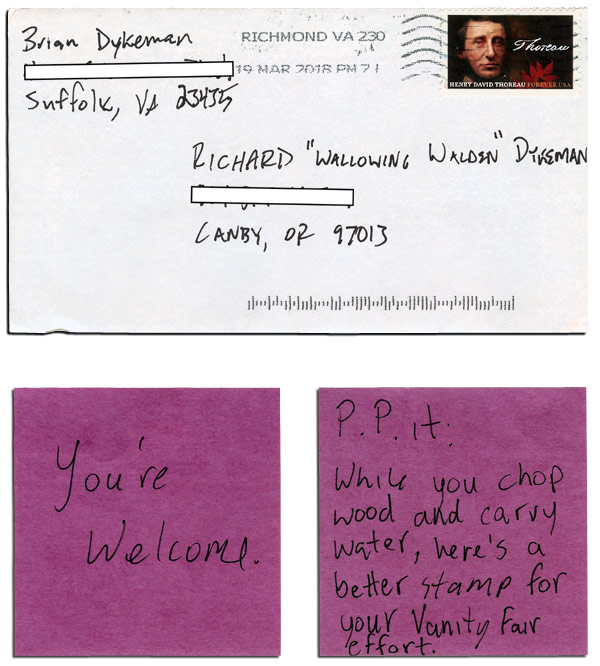 Brian Dykeman
RICHMOND VA 230
19 MAR 2018 PM 2 L
Suffolk, VA 23435
Thoreau
HENRY DAVID THOREAU FOREVER USA
RICHARD "WALLOWING WALDEN" DYKEMAN
CANBY, OR 97013
You're
Welcome.
P.P. it:
While you chop
wood and carry
water, here's a
better stamp for
your Vanity Fair
effort.